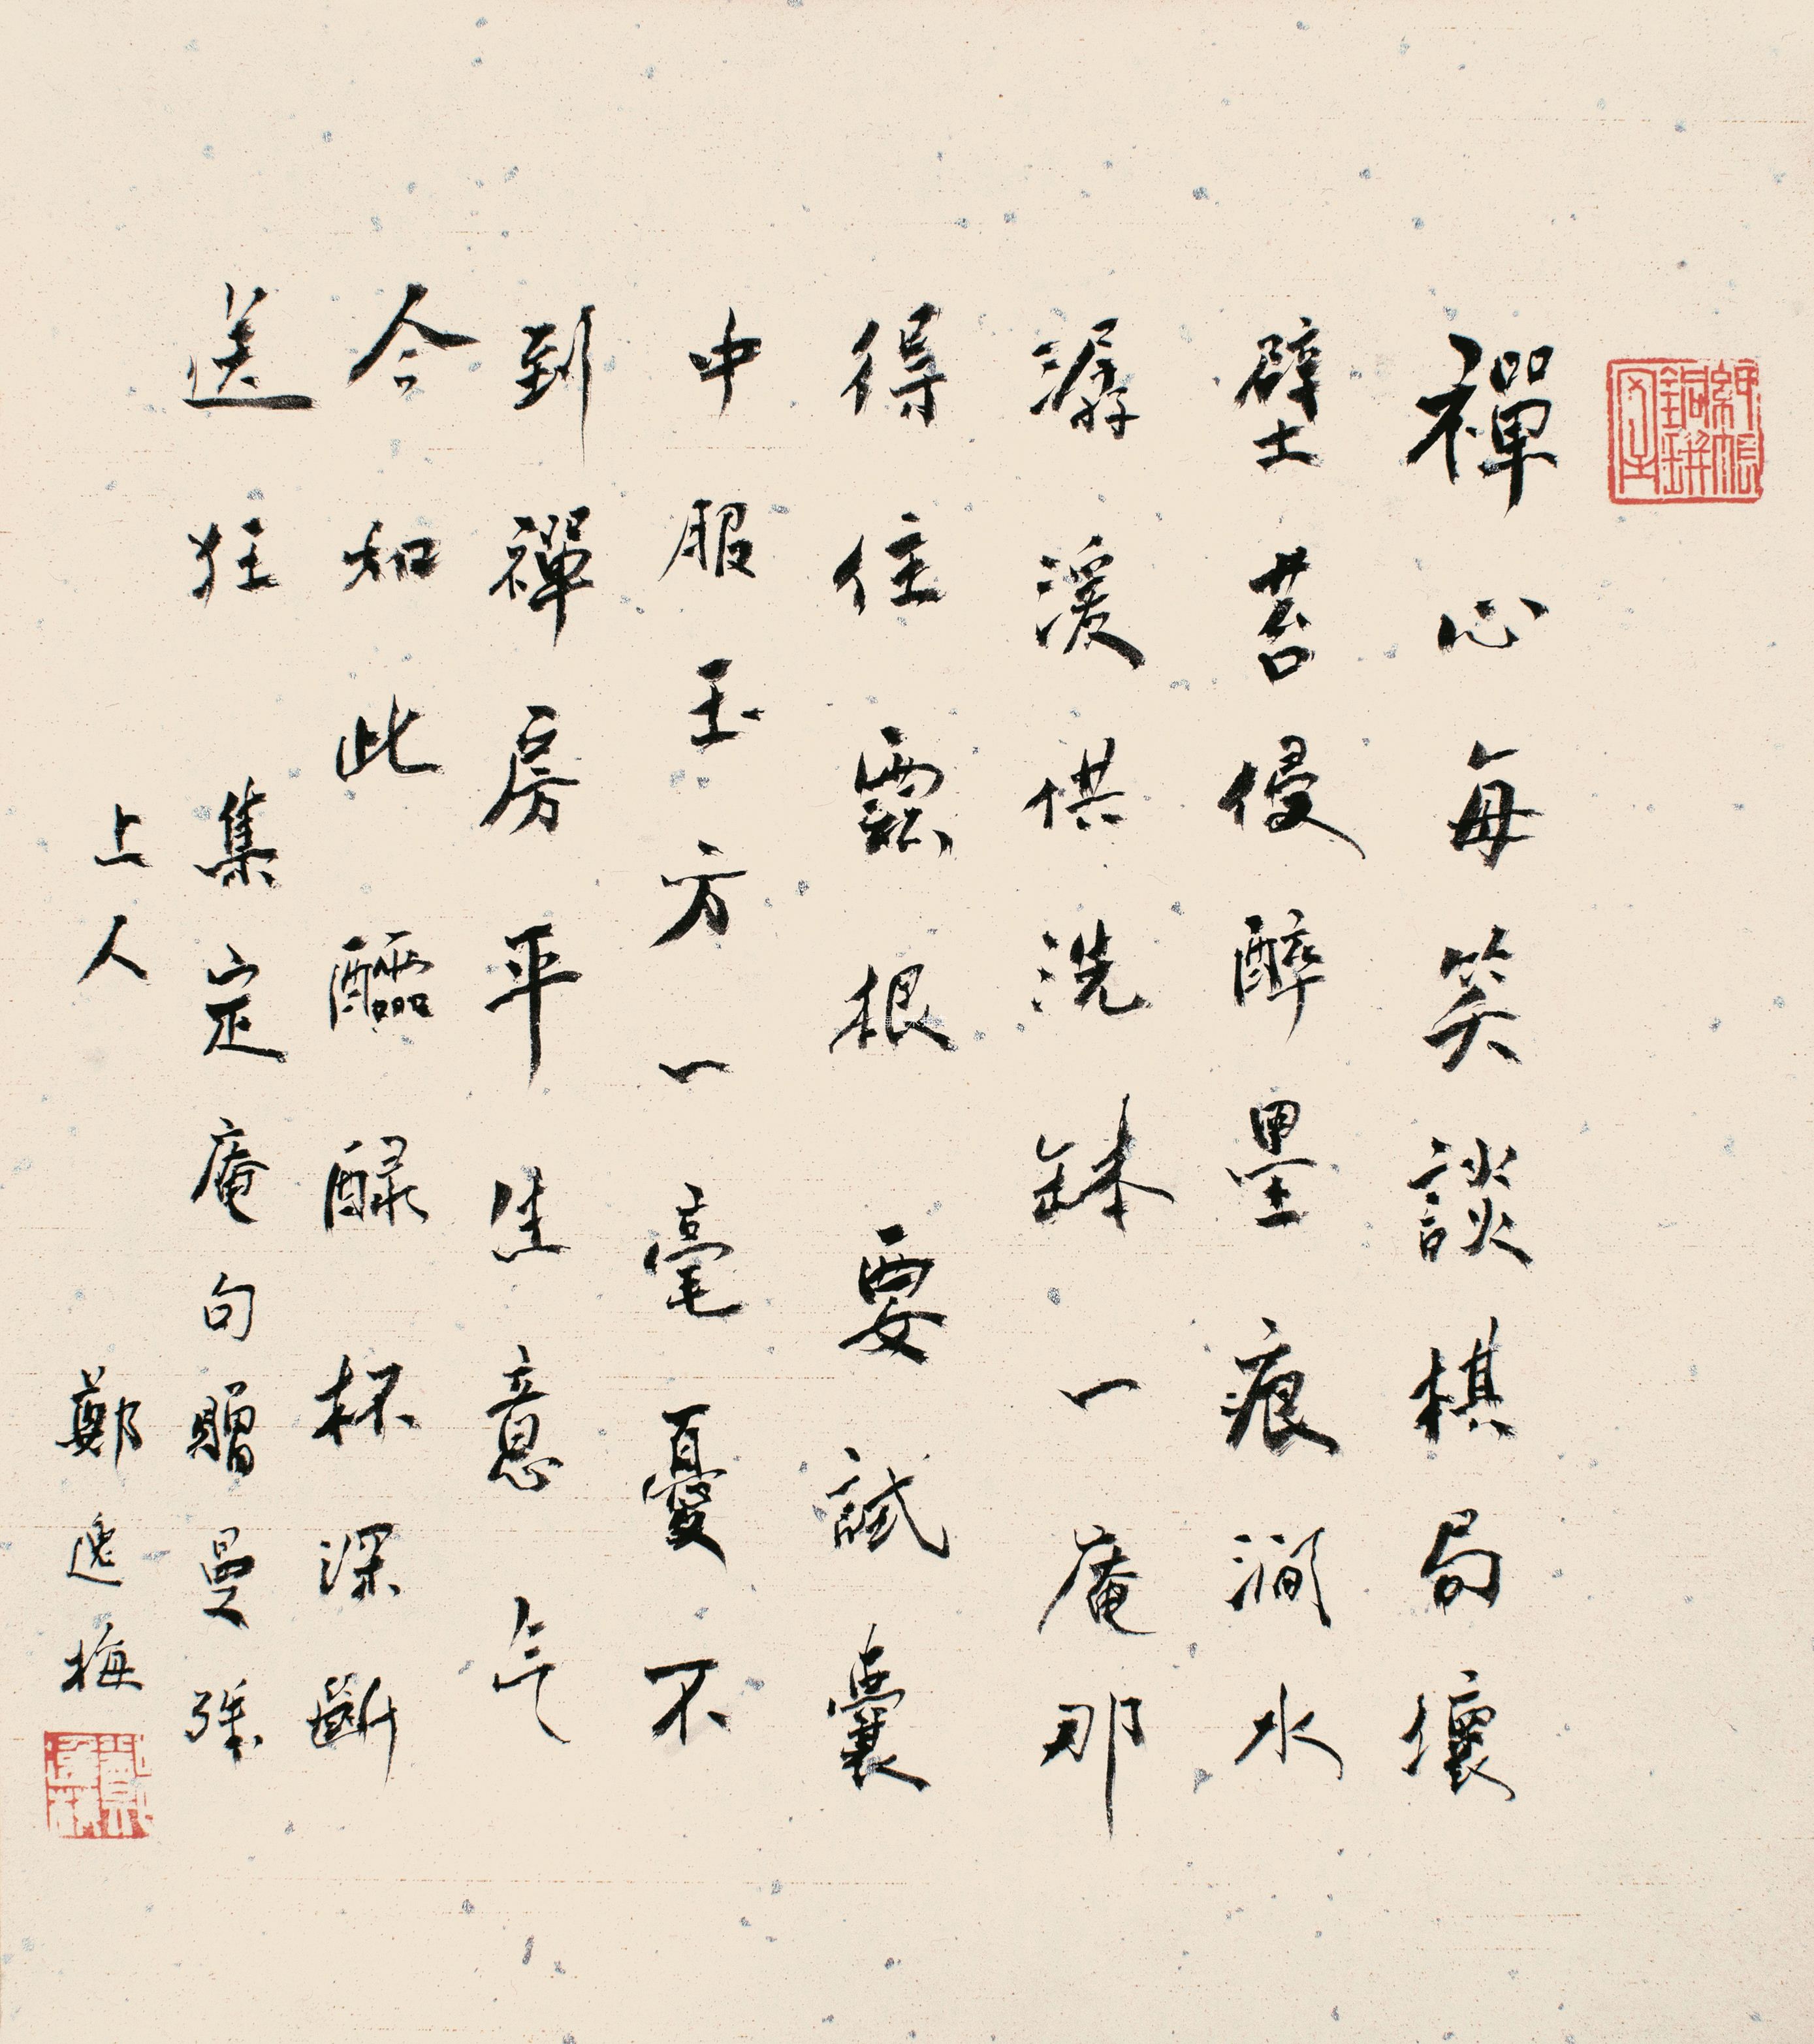 禪心每笑談棋局壞
壁苔侵醉墨痕澗水
潺湲供洗鉢一庵那
得住雲根要試囊
中服玉方一毫憂不
到禪房平生意气
今知此醽醁杯深斷
送狂
集定庵句贈曼殊
上人
鄭逸梅